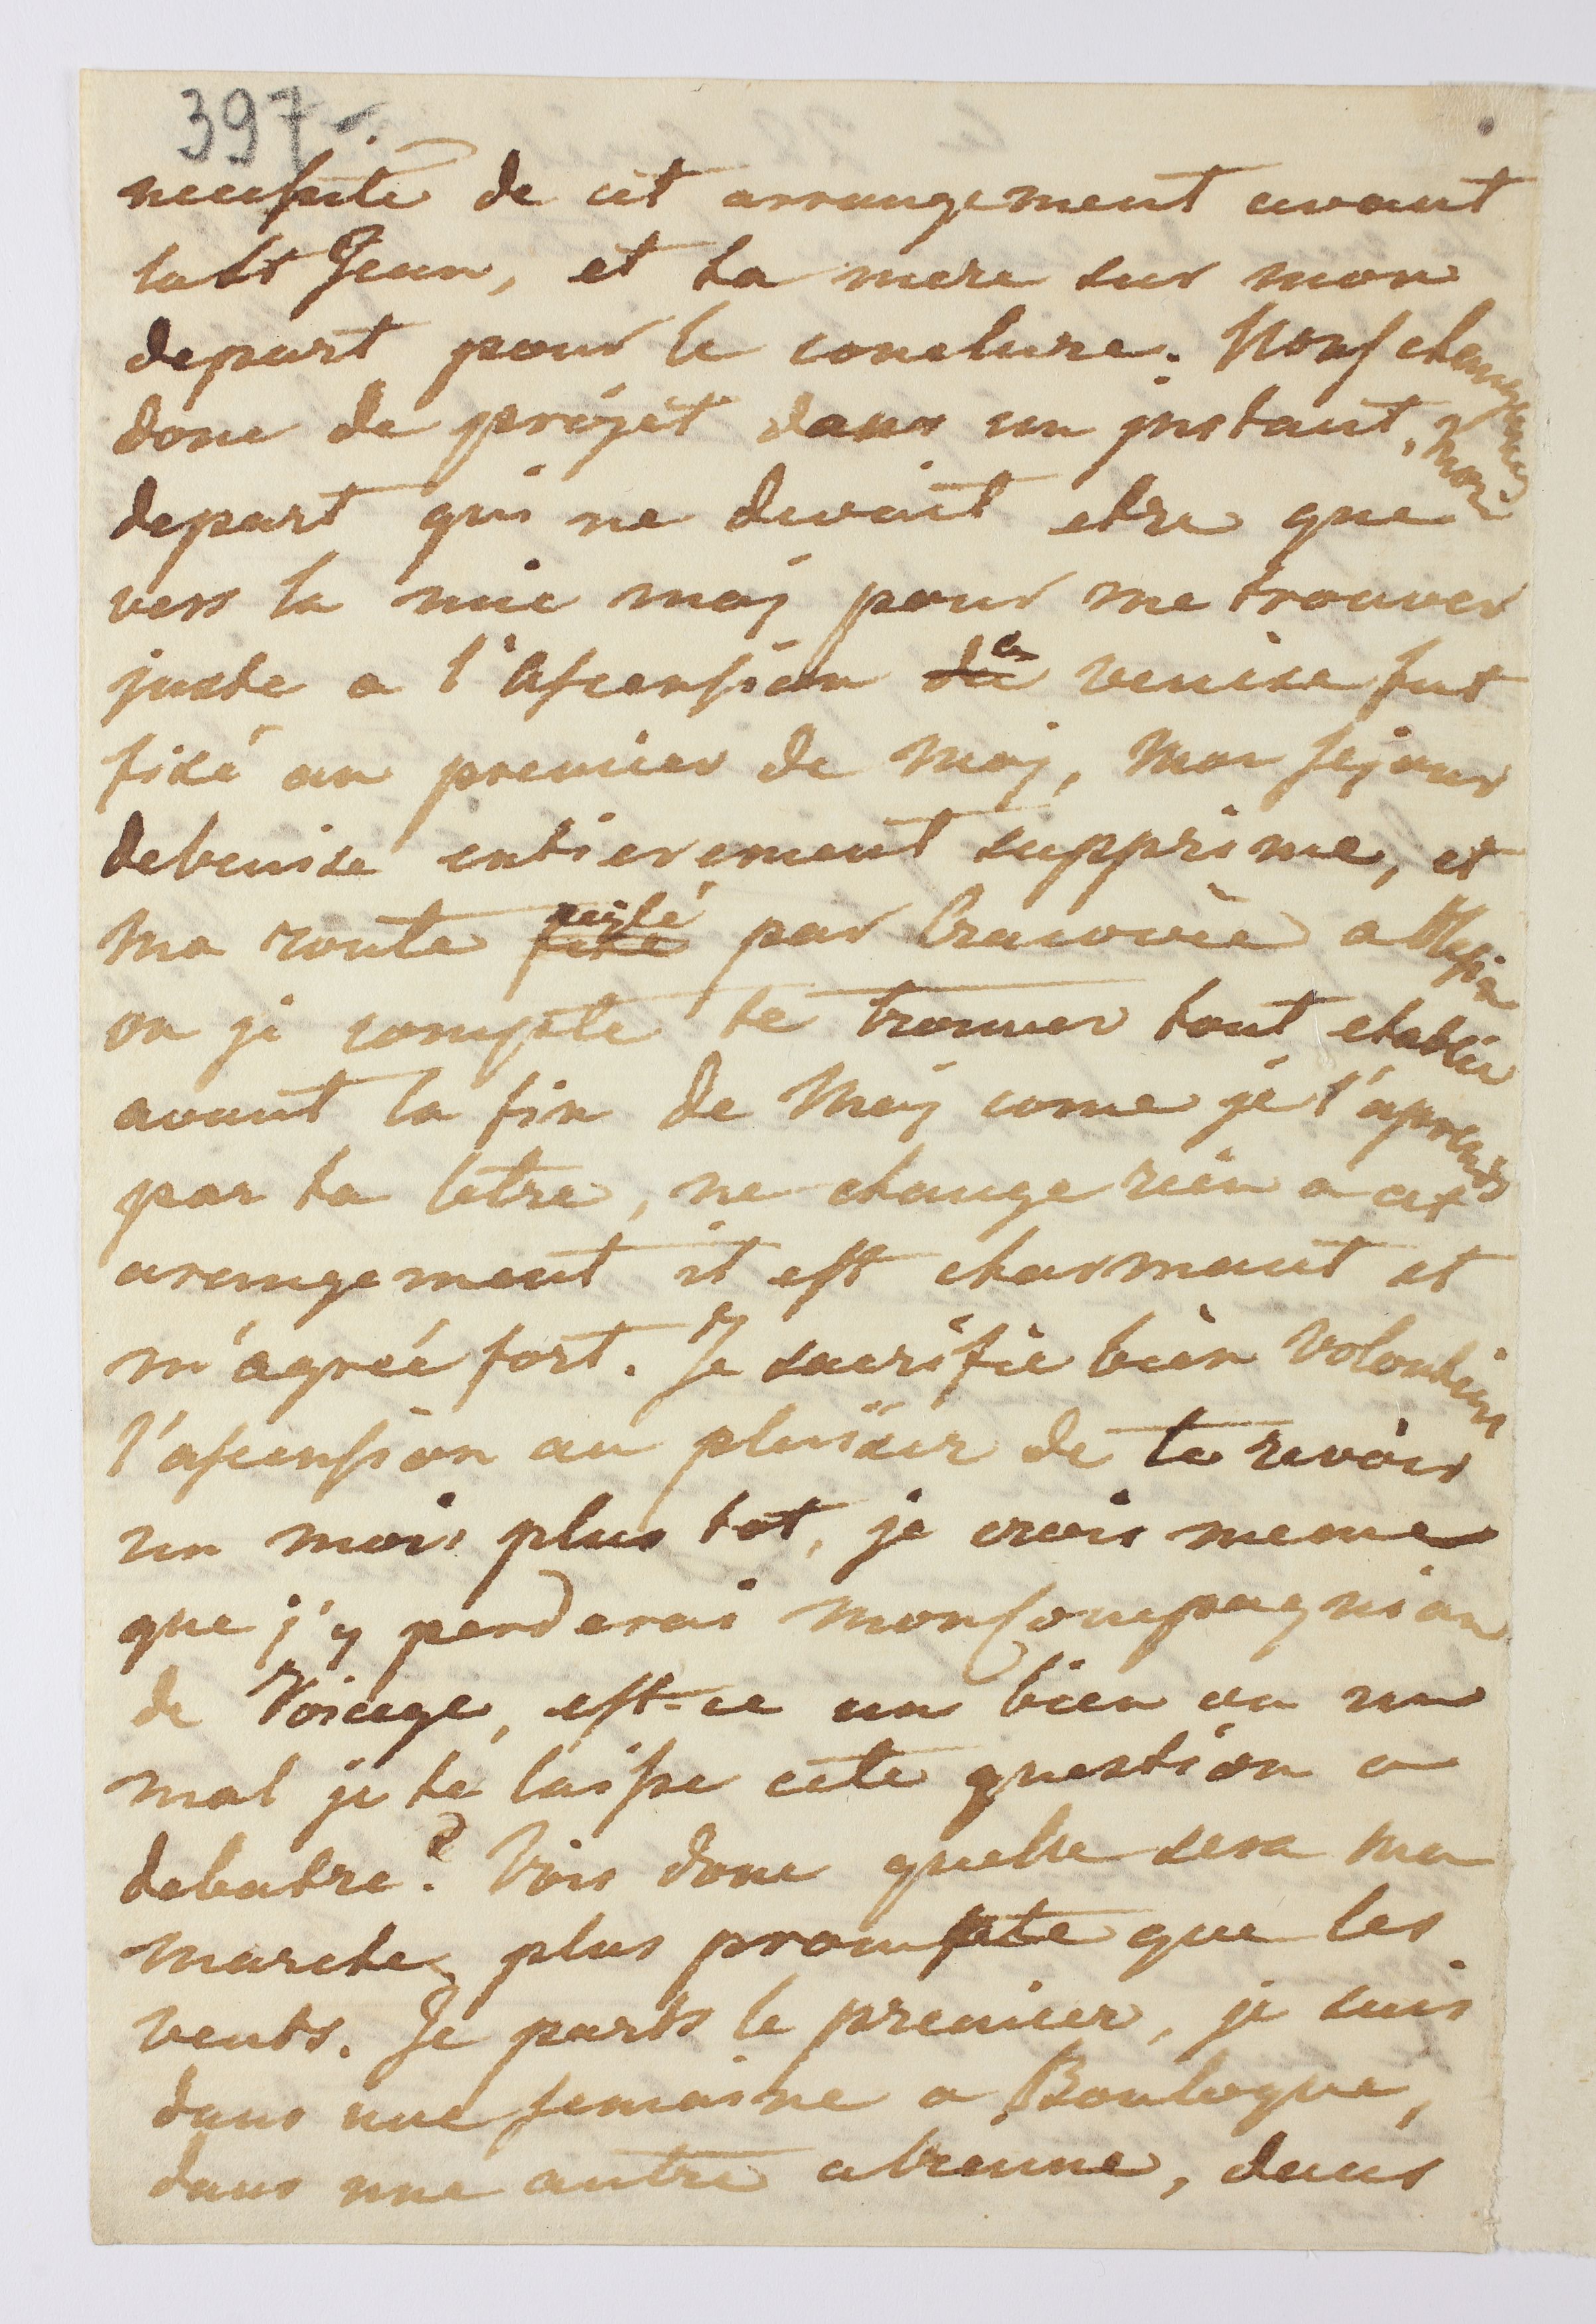 397-.
necessité de cet arrangement avant
la St Jean, et ta mere sur mon
depart pour le conclure. Nous changeames
donc de projet dans un instant, mon
depart qui ne devait etre que
vers la mie maj pour me trouver
juste a l'Ascension de a venise fut
fixé au premier de Maj, Mon sejour
de venise entierement supprime, et
ma route fixé reglé par Cracovie a
ou je compte te trouver tout etablie
avant la fin de Maj come je l'aprends
par ta letre, ne change rien a cet
arengement il est charmant et
m'agrée fort. Je sacrifie bien volontiers
l'ascension au plaisir de te revoir
un mois plus tot, je crois meme
que j'y perderai mon Compagnion
de Voiage, est-ce un bien ou un
mal je te laisse cete question a
debatre? Vois donc quelle sera ma
marche, plus prompte que les
vents. Je parts le premier, je suis
dans une semaine a Boulogne,
dans une autre a Vienne, dans